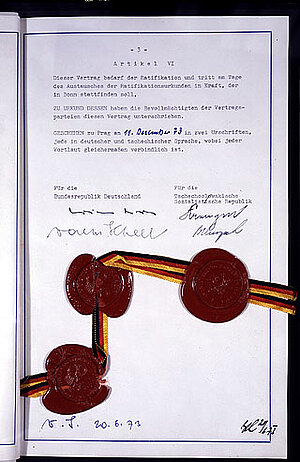 - 3 -
Artikel VI
Dieser Vertrag bedarf der Ratifikation und tritt am Tage
des Austausches der Ratifikationsurkunden in Kraft, der
in Bonn stattfinden soll.
ZU URKUND DESSEN haben die Bevollmächtigten der Vertrags-
parteien diesen Vertrag unterschrieben.
GESCHEHEN zu Prag am 11. Dezember 73 in zwei Urschriften,
jede in deutscher und tschechischer Sprache, wobei jeder
Wortlaut gleichermaßen verbindlich ist.
Für die
Bundesrepublik Deutschland
Für die
Tschechoslowakische
Sozialistische Republik
20.6.73